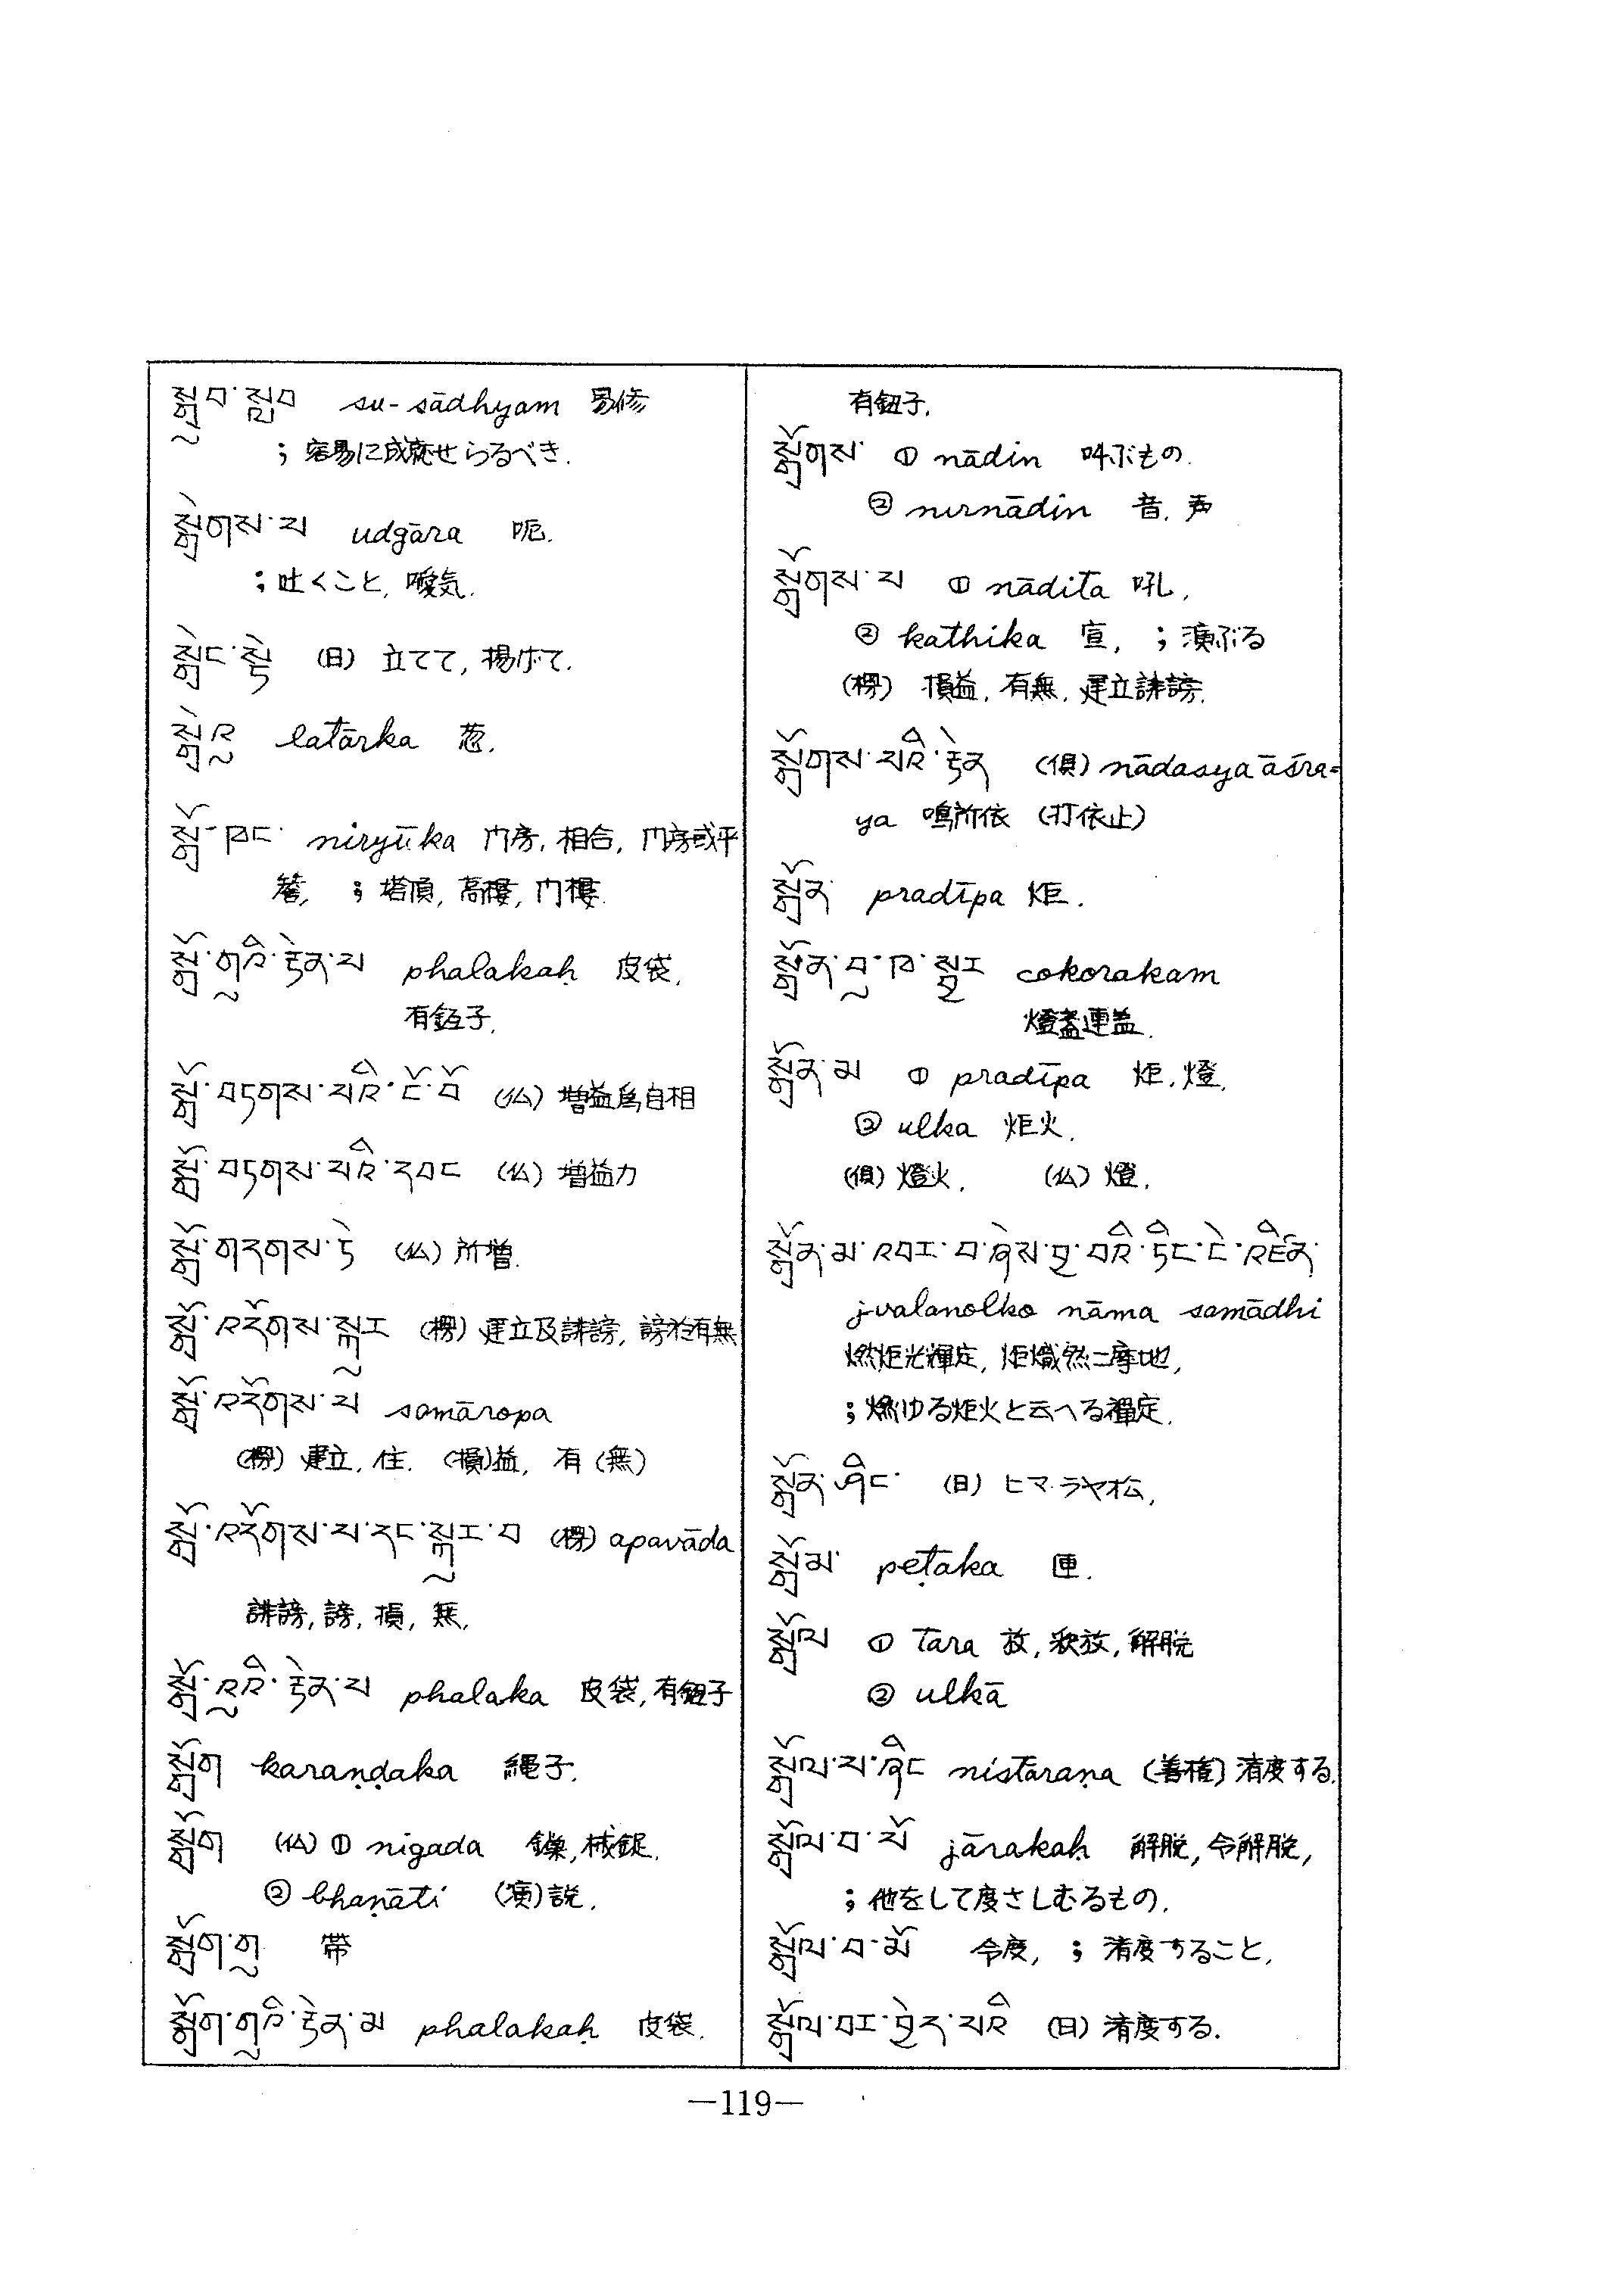 སྒྲུབ་སླབ su-sādhyam 易修
；容易に成就せらるべき．
སྒྲེགས་པ udgāra 呃．
；吐くこと，噯気．
སྒྲེང་སྟེ （日）立てて，揚げて．
སྒྲེའུ latārka 葱．
སྒྲོ་ཁང་ niryūka 门房，相合，门房或平
簷， ；塔頂，高樓，门樓．
སྒྲོ་གུའི་རྟེན་པ phalakaḥ 皮袋，
有鈕子．
སྒྲོ་བཏགས་པའི་ངོ་བོ （仏）增益為自相
སྒྲོ་བཏགས་པའི་དབང （仏）增益力
སྒྲོ་གདགས་ཏེ （仏）所增．
སྒྲོ་འདོགས་སྐུར （楞）建立及誹謗，謗於有無
སྒྲོ་འདོགས་པ samāropa
（楞）建立，住．（損）益，有（無）
སྒྲོ་འདོགས་པ་དང་སྐུར་བ （楞）apavāda
誹謗，謗，損，無，
སྒྲོ་འུའི་རྟེན་པ phalaka 皮袋，有鈕子
སྒྲོག karaṇḍaka 繩子．
སྒྲོག （仏）① nigada 鏁，械鋜．
② bhaṇāti （演）説．
སྒྲོག་གུ 帶
སྒྲོག་གུའི་རྟེན་མ phalakaḥ 皮袋．
有鈕子．
སྒྲོགས་ ① nādin 叫ぶもの．
② nirnādin 音，声
སྒྲོགས་པ ① nādita 吼，
② kathika 宣，；演ぶる
（楞）損益，有無，建立誹謗．
སྒྲོགས་པའི་རྟེན （俱）nādasya āśra=
ya 鳴所依（打依止）
སྒྲོན pradīpa 炬．
སྒྲོན་བུ་ཁ་སྦྱར cokorakam
燈盞連盖．
སྒྲོན་མ ① pradīpa 炬，燈，
② ulka 炬火．
（俱）燈火． （仏）燈．
སྒྲོན་མ་འབར་བ་ཞེས་བྱ་བའི་ཏིང་ངེ་འཛིན་
jvalanolko nāma samādhi
燃炬光輝定，炬熾然三摩地，
；燃ゆる炬火と云へる禪定．
སྒྲོན་ཤིང་ （日）ヒマラヤ松，
སྒྲོམ་ peṭaka 匣．
སྒྲོལ ① tara 放，釈放，解脱
② ulkā
སྒྲོལ་པ་ཞིང nistāraṇa （善権）済度する．
སྒྲོལ་བ་པོ jārakaḥ 解脱，令解脱，
；他をして度さしむるもの．
སྒྲོལ་བ་མོ 令度，；済度すること，
སྒྲོལ་བར་བྱེད་པའི （日）済度する．
—119—